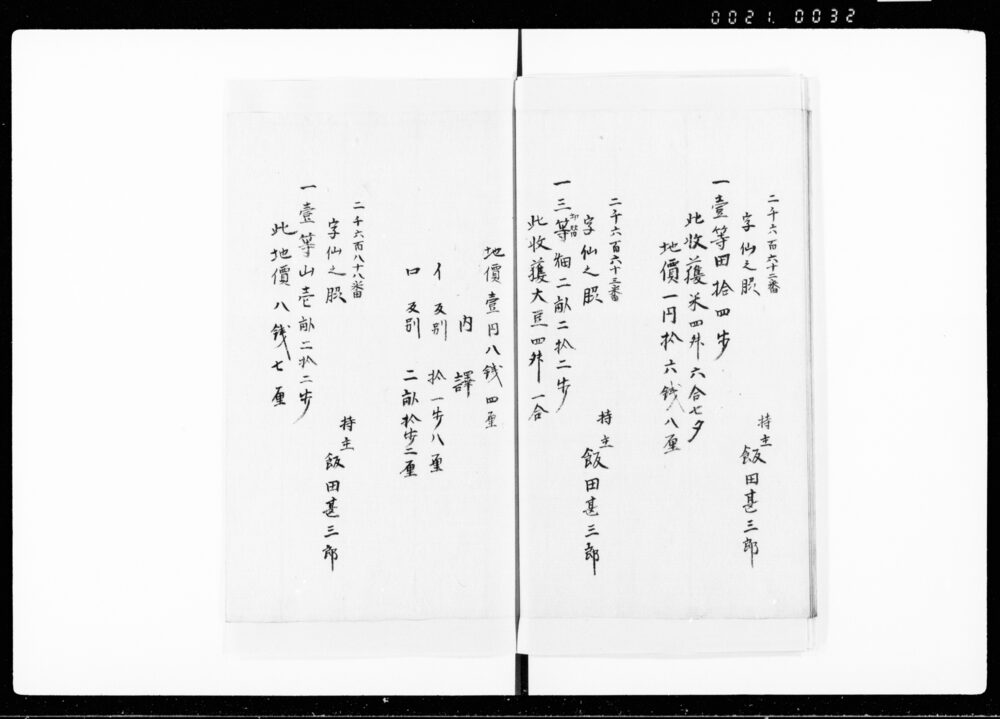 0021. 0032
二千六百六十二番
字仙之腰
持主 飯田甚三郎
一壹等田拾四歩
此收獲米四舛六合七夕
地價一円拾六銭八厘
二千六百六十三番
字仙之腰
持主 飯田甚三郎
一三等畑二畝二拾二歩
此收獲大豆四舛一合
地價壹円八銭四厘
内譯
イ 反別 拾一歩八厘
ロ 反別 二畝拾歩二厘
二千六百八十八番
字仙之腰
持主 飯田甚三郎
一壹等山壱畝二拾二歩
此地價八銭七厘